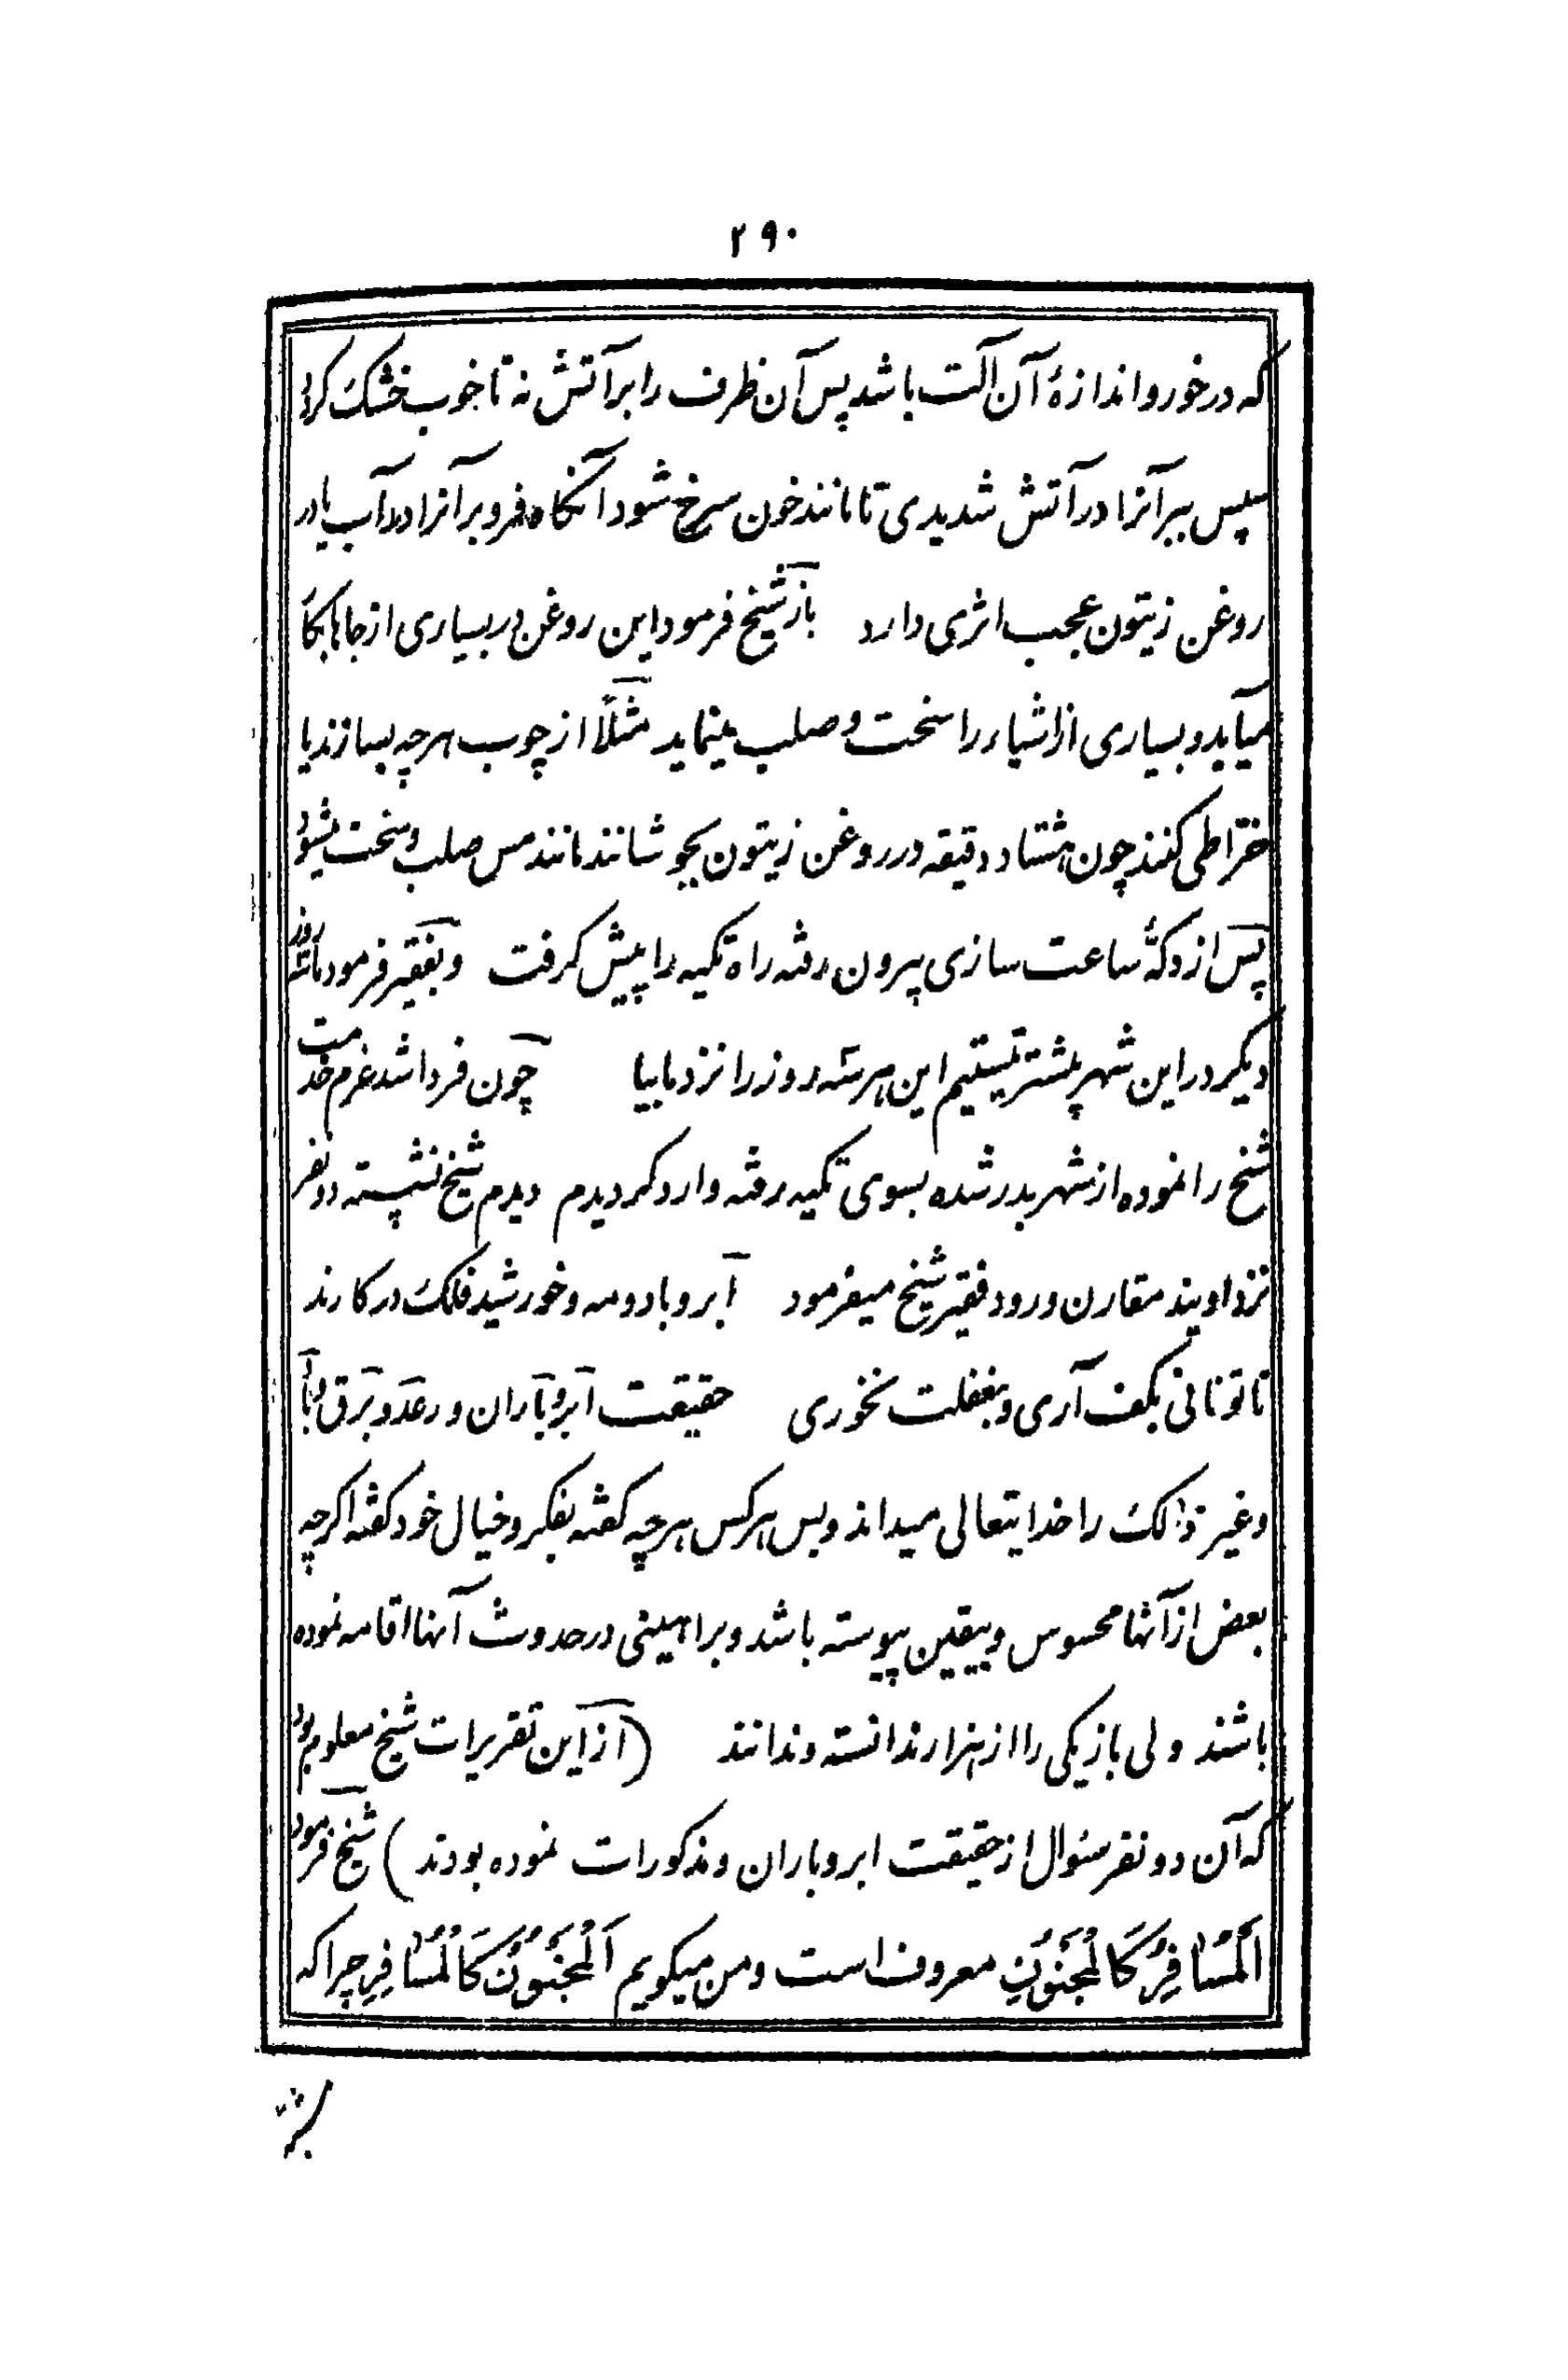 ۲۹۰
که درخور و اندازهٔ آن آلت باشد پس آن ظرف را بر آتش نه تا خوب خشک گردد
سپس ببر آنرا در آتش شدیدی تا مانند خون سرخ شود آنگاه فرو بر آنرا در آب یا در
روغن زیتون عجیب اثری دارد باز شیخ فرمود این روغن در بسیاری از جاها بکار
میآید و بسیاری از اشیاء را سخت و صلب مینماید مثلاً از چوب هر چه بسازند یا
خرّاطی کنند چون هشتاد دقیقه در روغن زیتون بجوشانند مانند مس صلب و سخت میشود
پس از دکهٔ ساعت سازی بیرون رفته راه تکیه را پیش گرفت و بفقیر فرمود ما سه روز
دیگر در این شهر بیشتر نیستیم این هر سه روز را نزد ما بیا چون فردا شد عزم خدمت
شیخ را نموده از شهر بدر شده بسوی تکیه رفته وارد گردیدم دیدم شیخ نشسته دو نفر
نزد اویند مقارن ورود فقیر شیخ میفرمود ابر و باد و مه و خورشید فلک در کارند
تا تو نانی بکف آری و بغفلت نخوری حقیقت ابر و باران و رعد و برق
و غیر ذالک را خدایتعالی میداند و بس هر کس هر چه گفته بفکر و خیال خود گفته اگر چه
بعض از آنها محسوس و بیقین پیوسته باشد و براهینی در حدوث آنها اقامه نموده
باشند ولی باز یکی را از هزار ندانسته و ندانند (از این تقریرات شیخ معلوم بود
که آن دو نفر سئوال از حقیقت ابر و باران و مذکورات نموده بودند) شیخ فرمود
اَلْمُسٰافِرُ کَالْمَجْنُونِ معروف است و من میگویم اَلْمَجْنُونُ کَالْمُسٰافِرِ چرا که